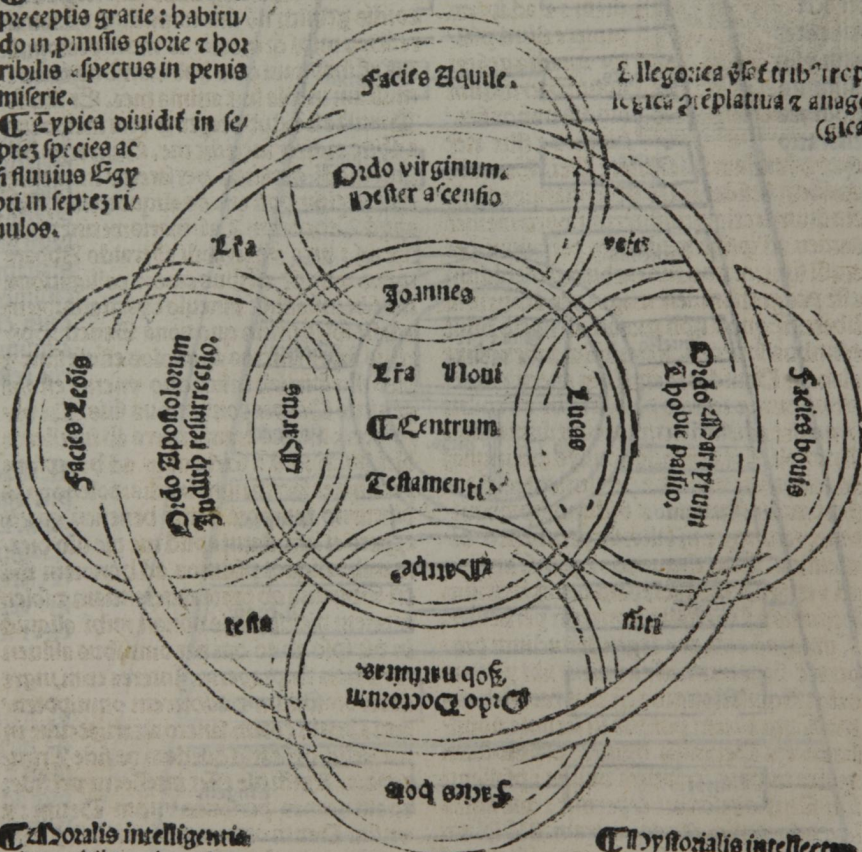 preceptis gratie: habitu/
do in ꝓmissis glorie ⁊ hor
ribilis aspectus in penis
miserie.
¶ Typica diuidit᷑ in se/
ptez species ac
fluuius Egy
pti in septez ri/
uulos.
Allegorica trop
(gica
Facies Aquile.
Ordo virginum.
Hester ascensio
Lr̃a
veter
Joannes
Facies Leõis
Ordo Apostolorum
Judith resurrectio.
Marcus
Lr̃a Noui
¶ Centrum
Testamenti.
Lucas
Ordo Martyrum
Thobie passio.
Facies bouis
Matthe⁹
testa
m̃ti
Ordo Doctorum
Job natiuitas.
Facies hois
¶ Moralis intelligentia
¶ Hystorialis intellectum